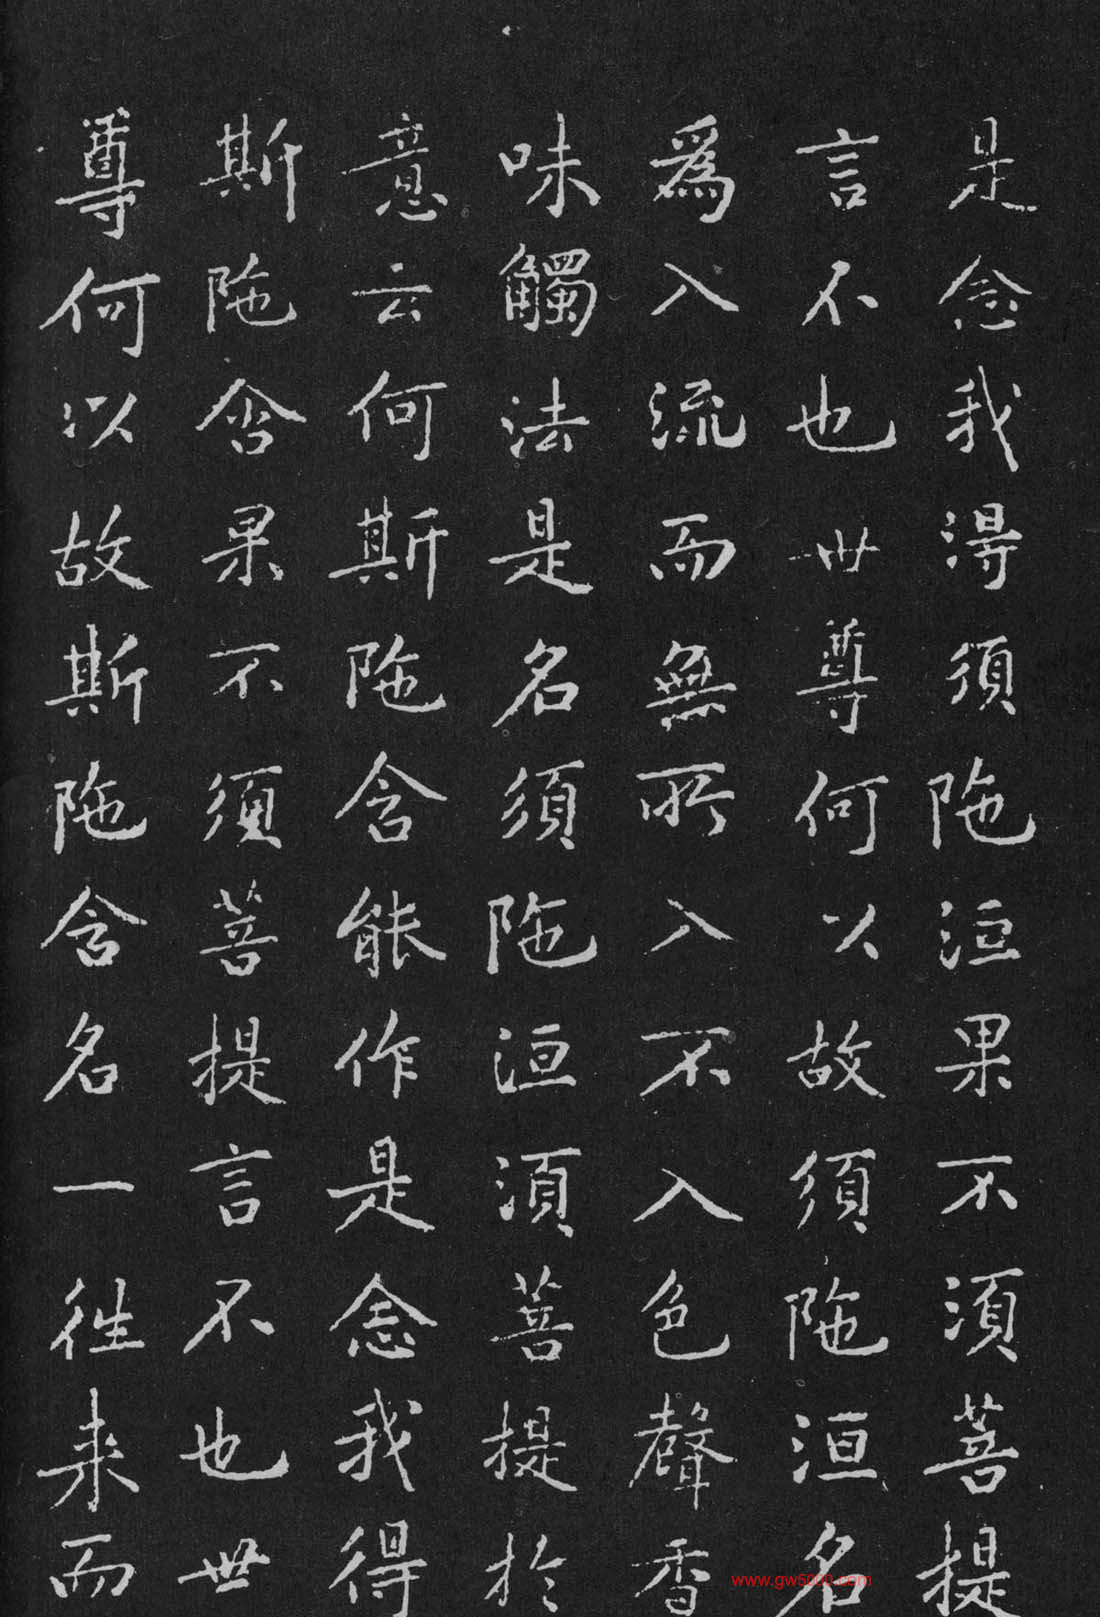 是念我得須陁洹果不須菩提
言不也世尊何以故須陁洹名
爲入流而無所入不入色聲香
味觸法是名須陁洹須菩提於
意云何斯陁含能作是念我得
斯陁含果不須菩提言不也世
尊何以故斯陁含名一往来而
www.gw5000.com